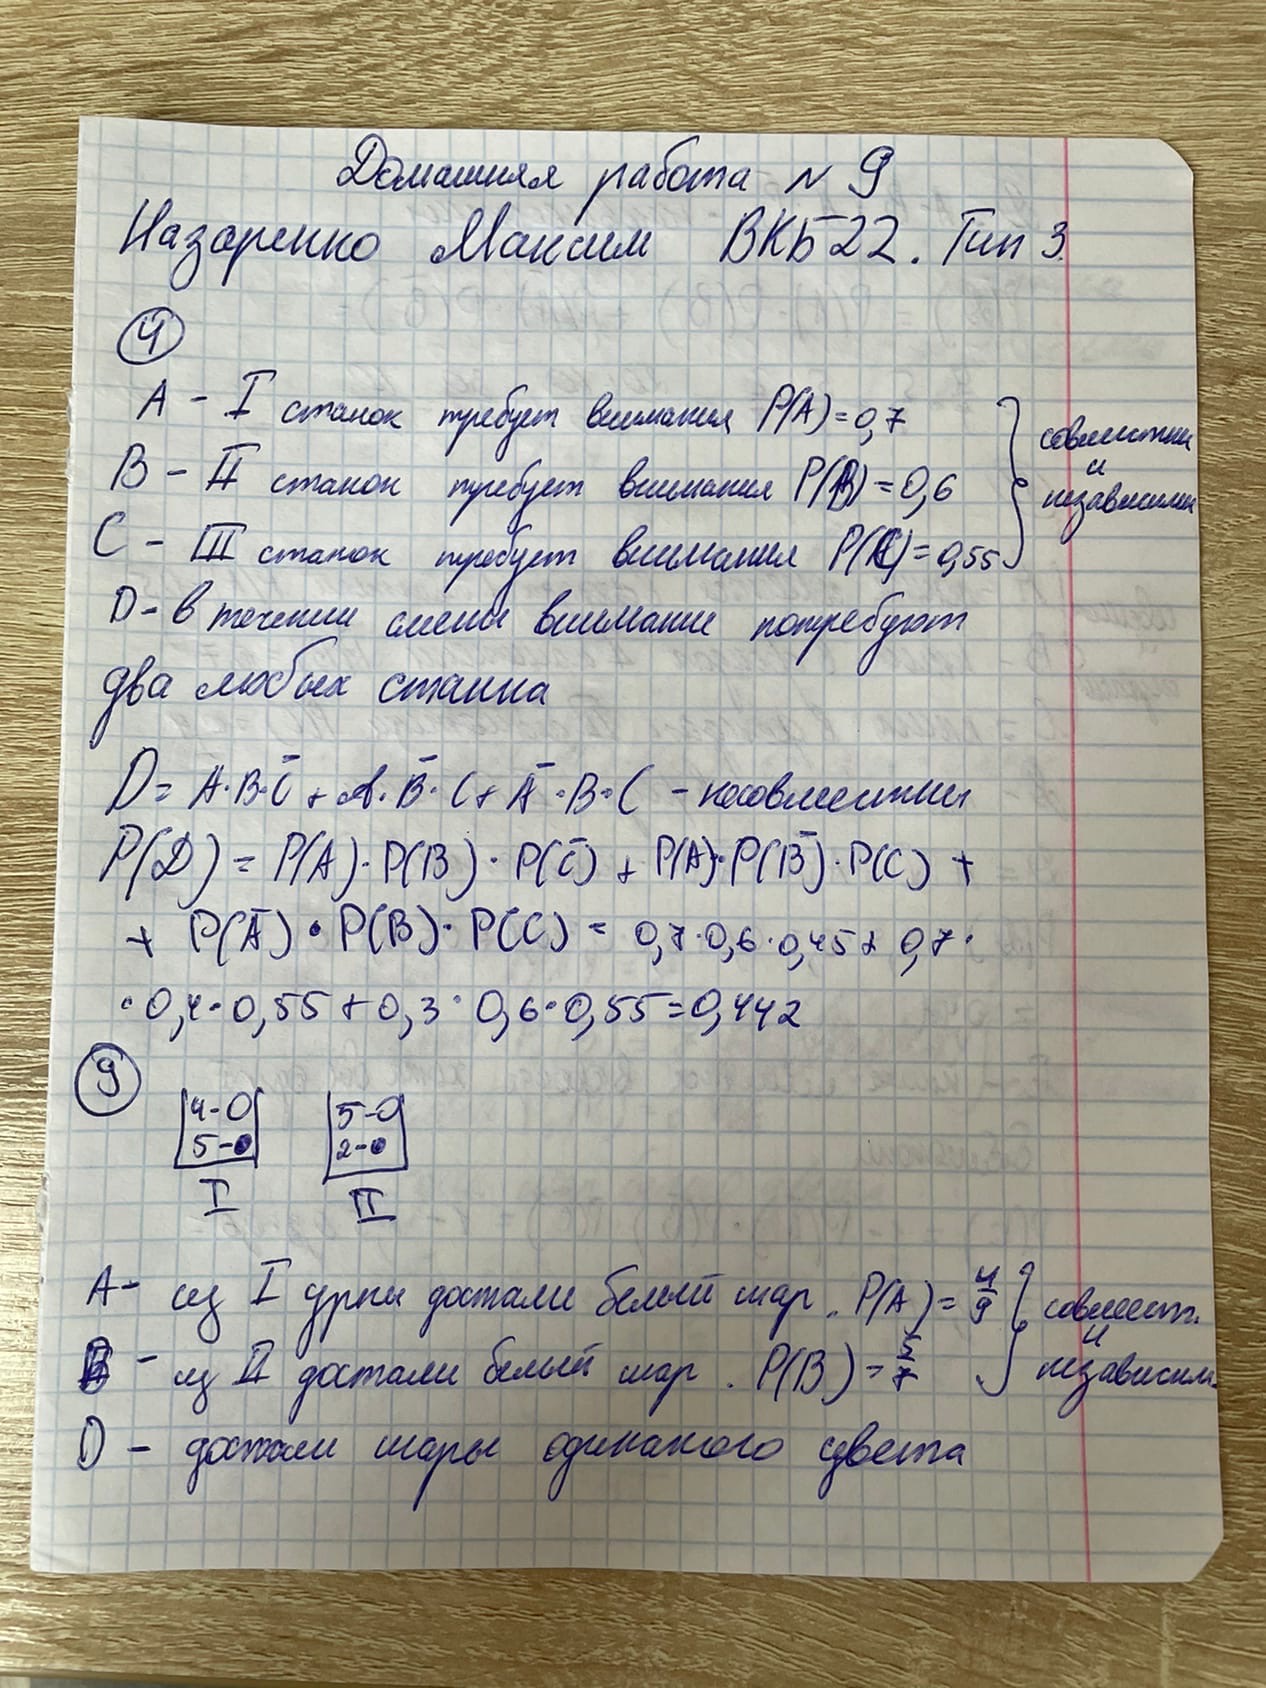 Домашняя работа № 9
Назаренко Максим ВКБ22. Тип 3.
4
A - I станок требует внимания P(A)=0,7
B - II станок требует внимания P(B)=0,6
C - III станок требует внимания P(C)=0,55
совместны
и
независимы
D - в течении смены внимание потребуют
два любых станка
D = A·B·C̄ + A·B̄·C + Ā·B·C - несовместны
P(D) = P(A)·P(B)·P(C̄) + P(A)·P(B̄)·P(C) +
+ P(Ā)·P(B)·P(C) = 0,7·0,6·0,45 + 0,7·
·0,4·0,55 + 0,3·0,6·0,55 = 0,442
9
4-O 5-O
5-● 2-●
I II
A - из I урны достали белый шар. P(A) = 4/9
B - из II достали белый шар. P(B) = 5/7
совмест.
и
независим.
D - достали шары одинакого цвета